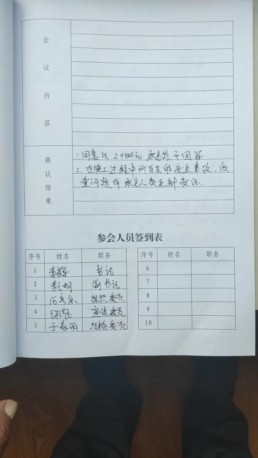 会议内容
商议结果
1. 同意以24800元 承包给于国军
2. 在施工过程中所发生的安全事故,质
量问题由承包人负全部责任
参会人员签到表
序号 姓名 职务 序号 姓名 职务
1 书记 6
2 副书记 7
3 组织委员 8
4 宣传委员 9
5 于春雨 纪检委员 10